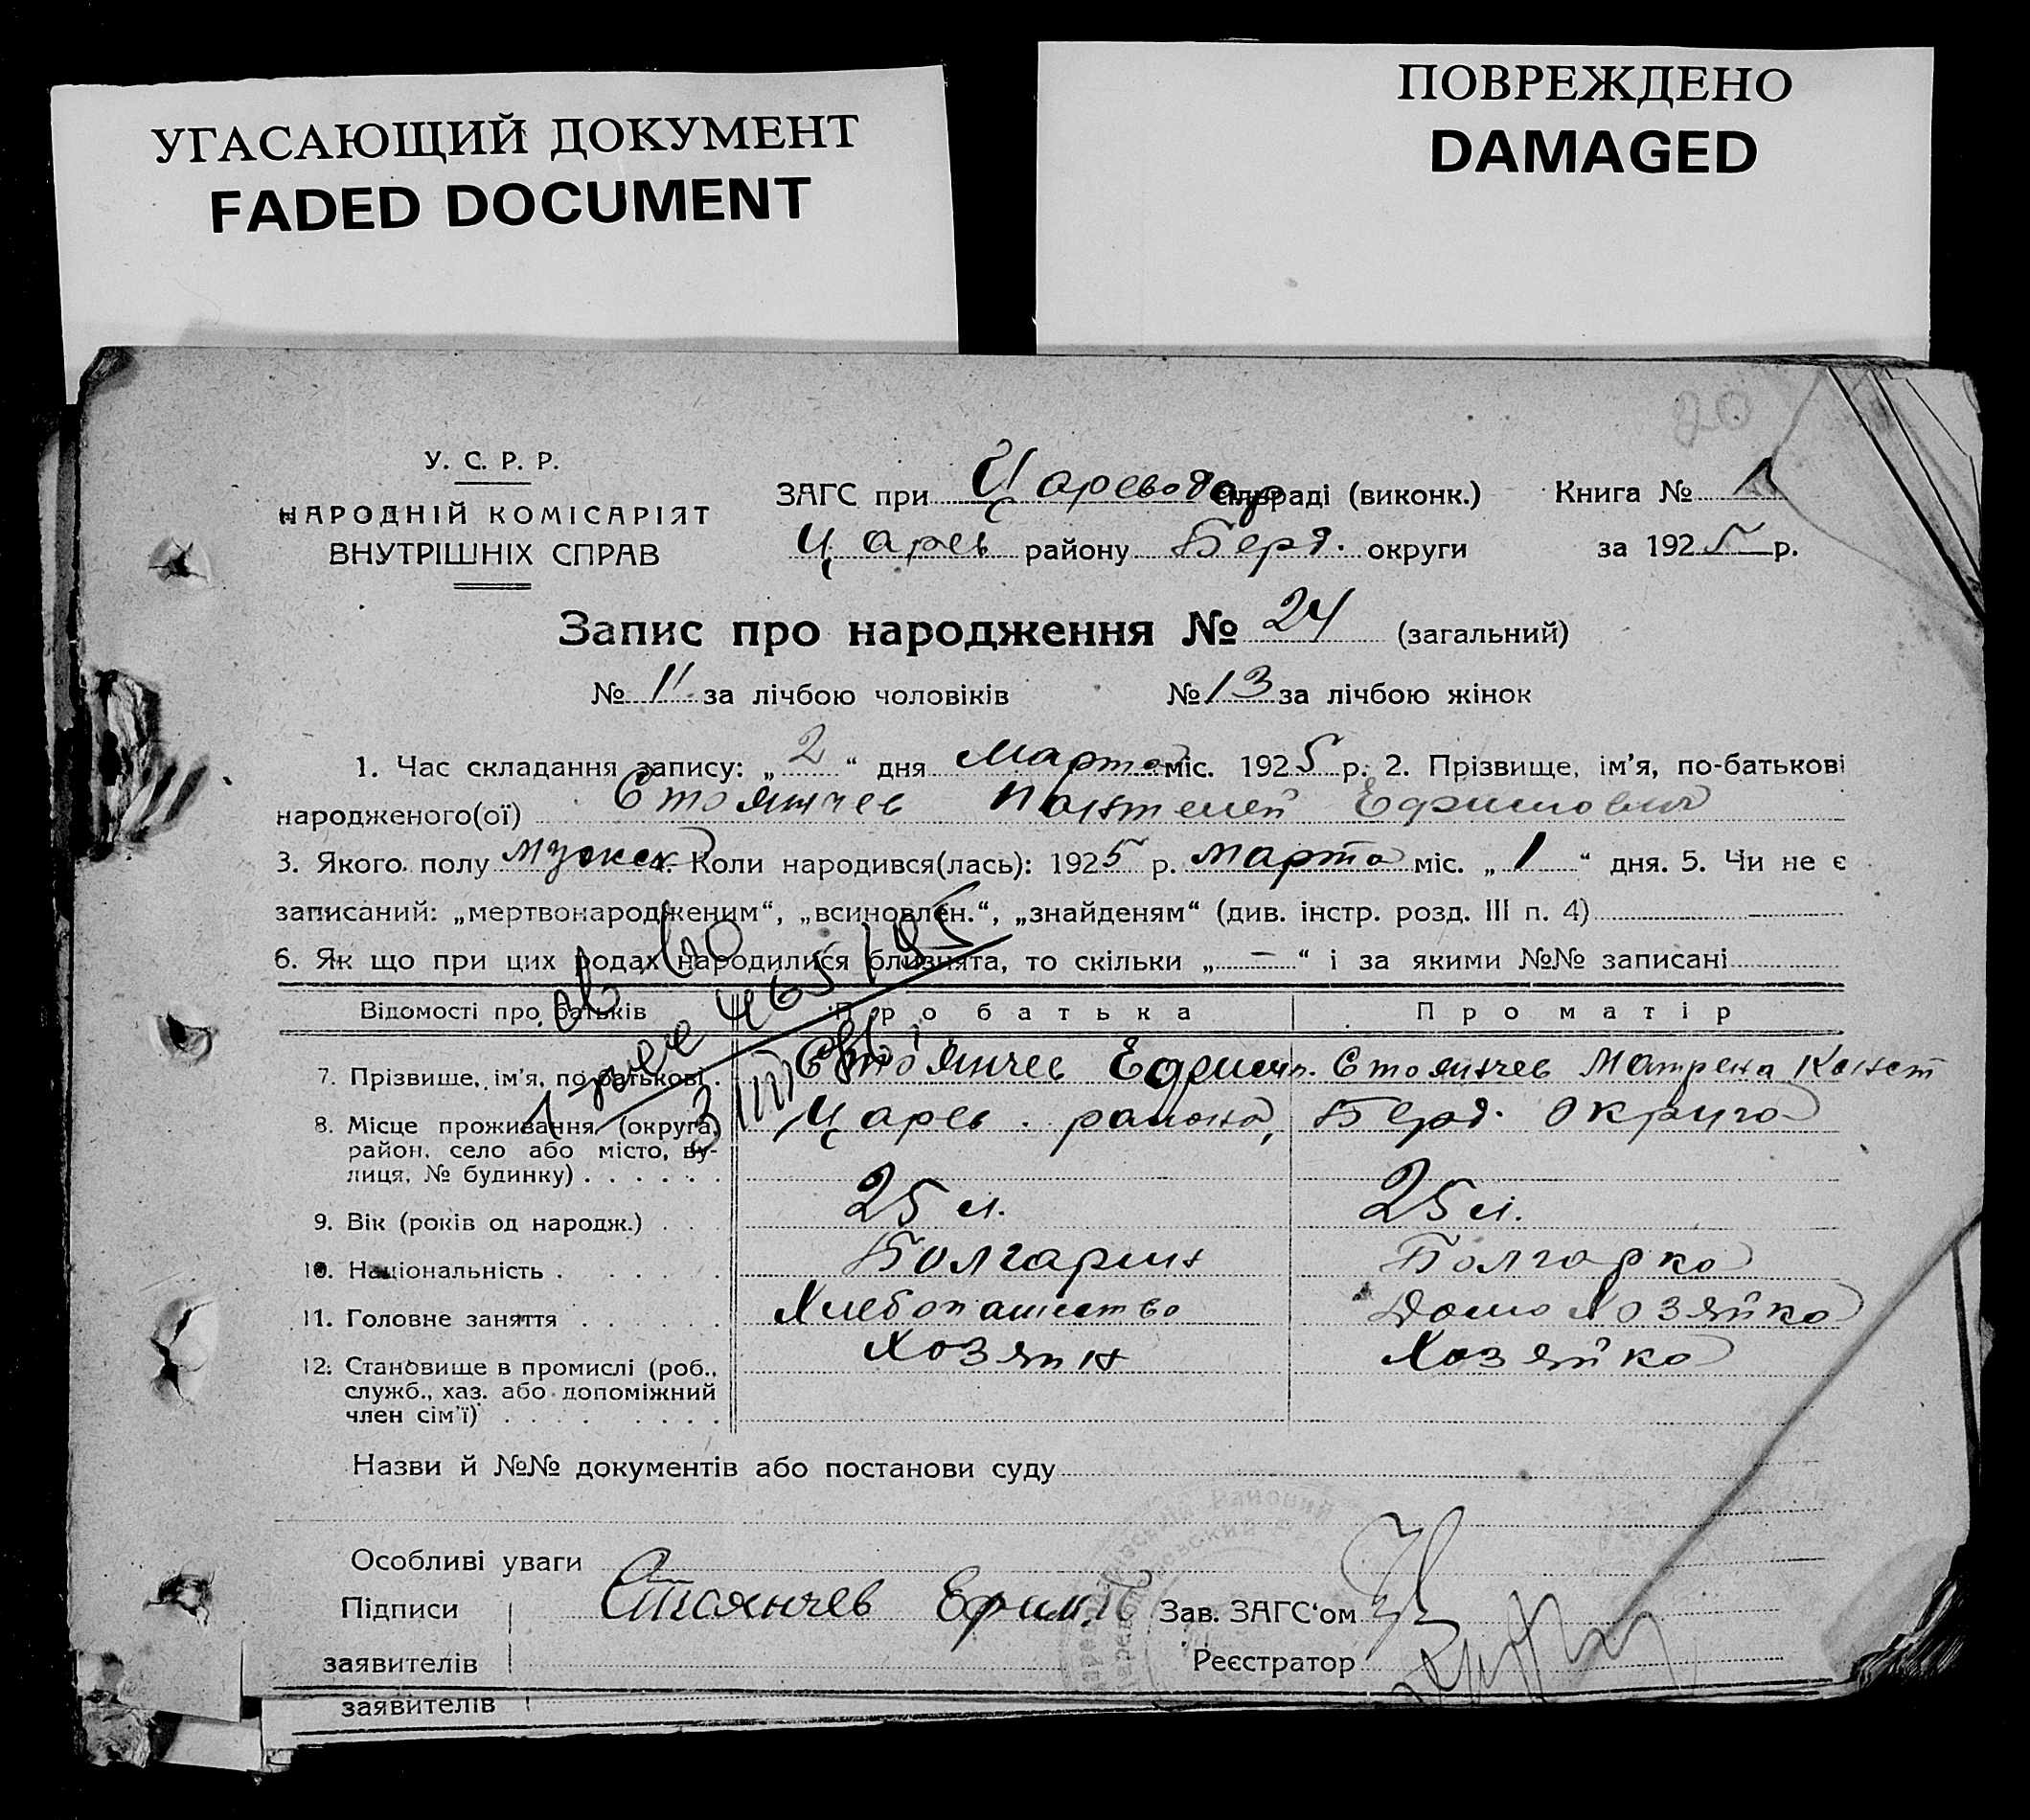 УГАСАЮЩИЙ ДОКУМЕНТ
FADED DOCUMENT
ПОВРЕЖДЕНО
DAMAGED
20
У. С. Р. Р.
НАРОДНІЙ КОМІСАРІЯТ
ВНУТРІШНІХ СПРАВ
ЗАГС при Цареводар сільраді (виконк.) Книга № 1
Царев району Берд. округи за 1925 р.
Запис про народження № 24 (загальний)
№ 11 за лічбою чоловіків № 13 за лічбою жінок
1. Час складання запису: „2“ дня Марта міс. 1925 р. 2. Прізвище, ім'я, по-батькові
народженого(ої) Стоянчев Пантелей Ефимович
3. Якого полу мужск. Коли народився(лась): 1925 р. марта міс. „1“ дня. 5. Чи не є
записаний: „мертвонародженим“, „всиновлен.“, „знайденям“ (див. інстр. розд. III п. 4)
6. Як що при цих родах народилися близнята, то скільки „—“ і за якими №№ записані
Відомості про батьків Про батька Про матір
7. Прізвище, ім'я, по-батькові . Стоянчев Ефим Стоянчев Матрена Конст
8. Місце проживання (округа, Царев. района, Берд. округа
район, село або місто, ву-
лиця, № будинку) . . . . . .
9. Вік (років од народж.) . . . 25 л. 25 л.
10. Національність . . . . . Болгарин Болгарка
11. Головне заняття . . . . . . Хлебопашество Домохозяйка
12. Становище в промислі (роб., Хозяин Хозяйка
служб., хаз. або допоміжний
член сім'ї) . . . . . . . .
Назви й №№ документів або постанови суду
Особливі уваги
Підписи Стоянчев Ефим Зав. ЗАГС'ом
заявителів Реєстратор
заявителів